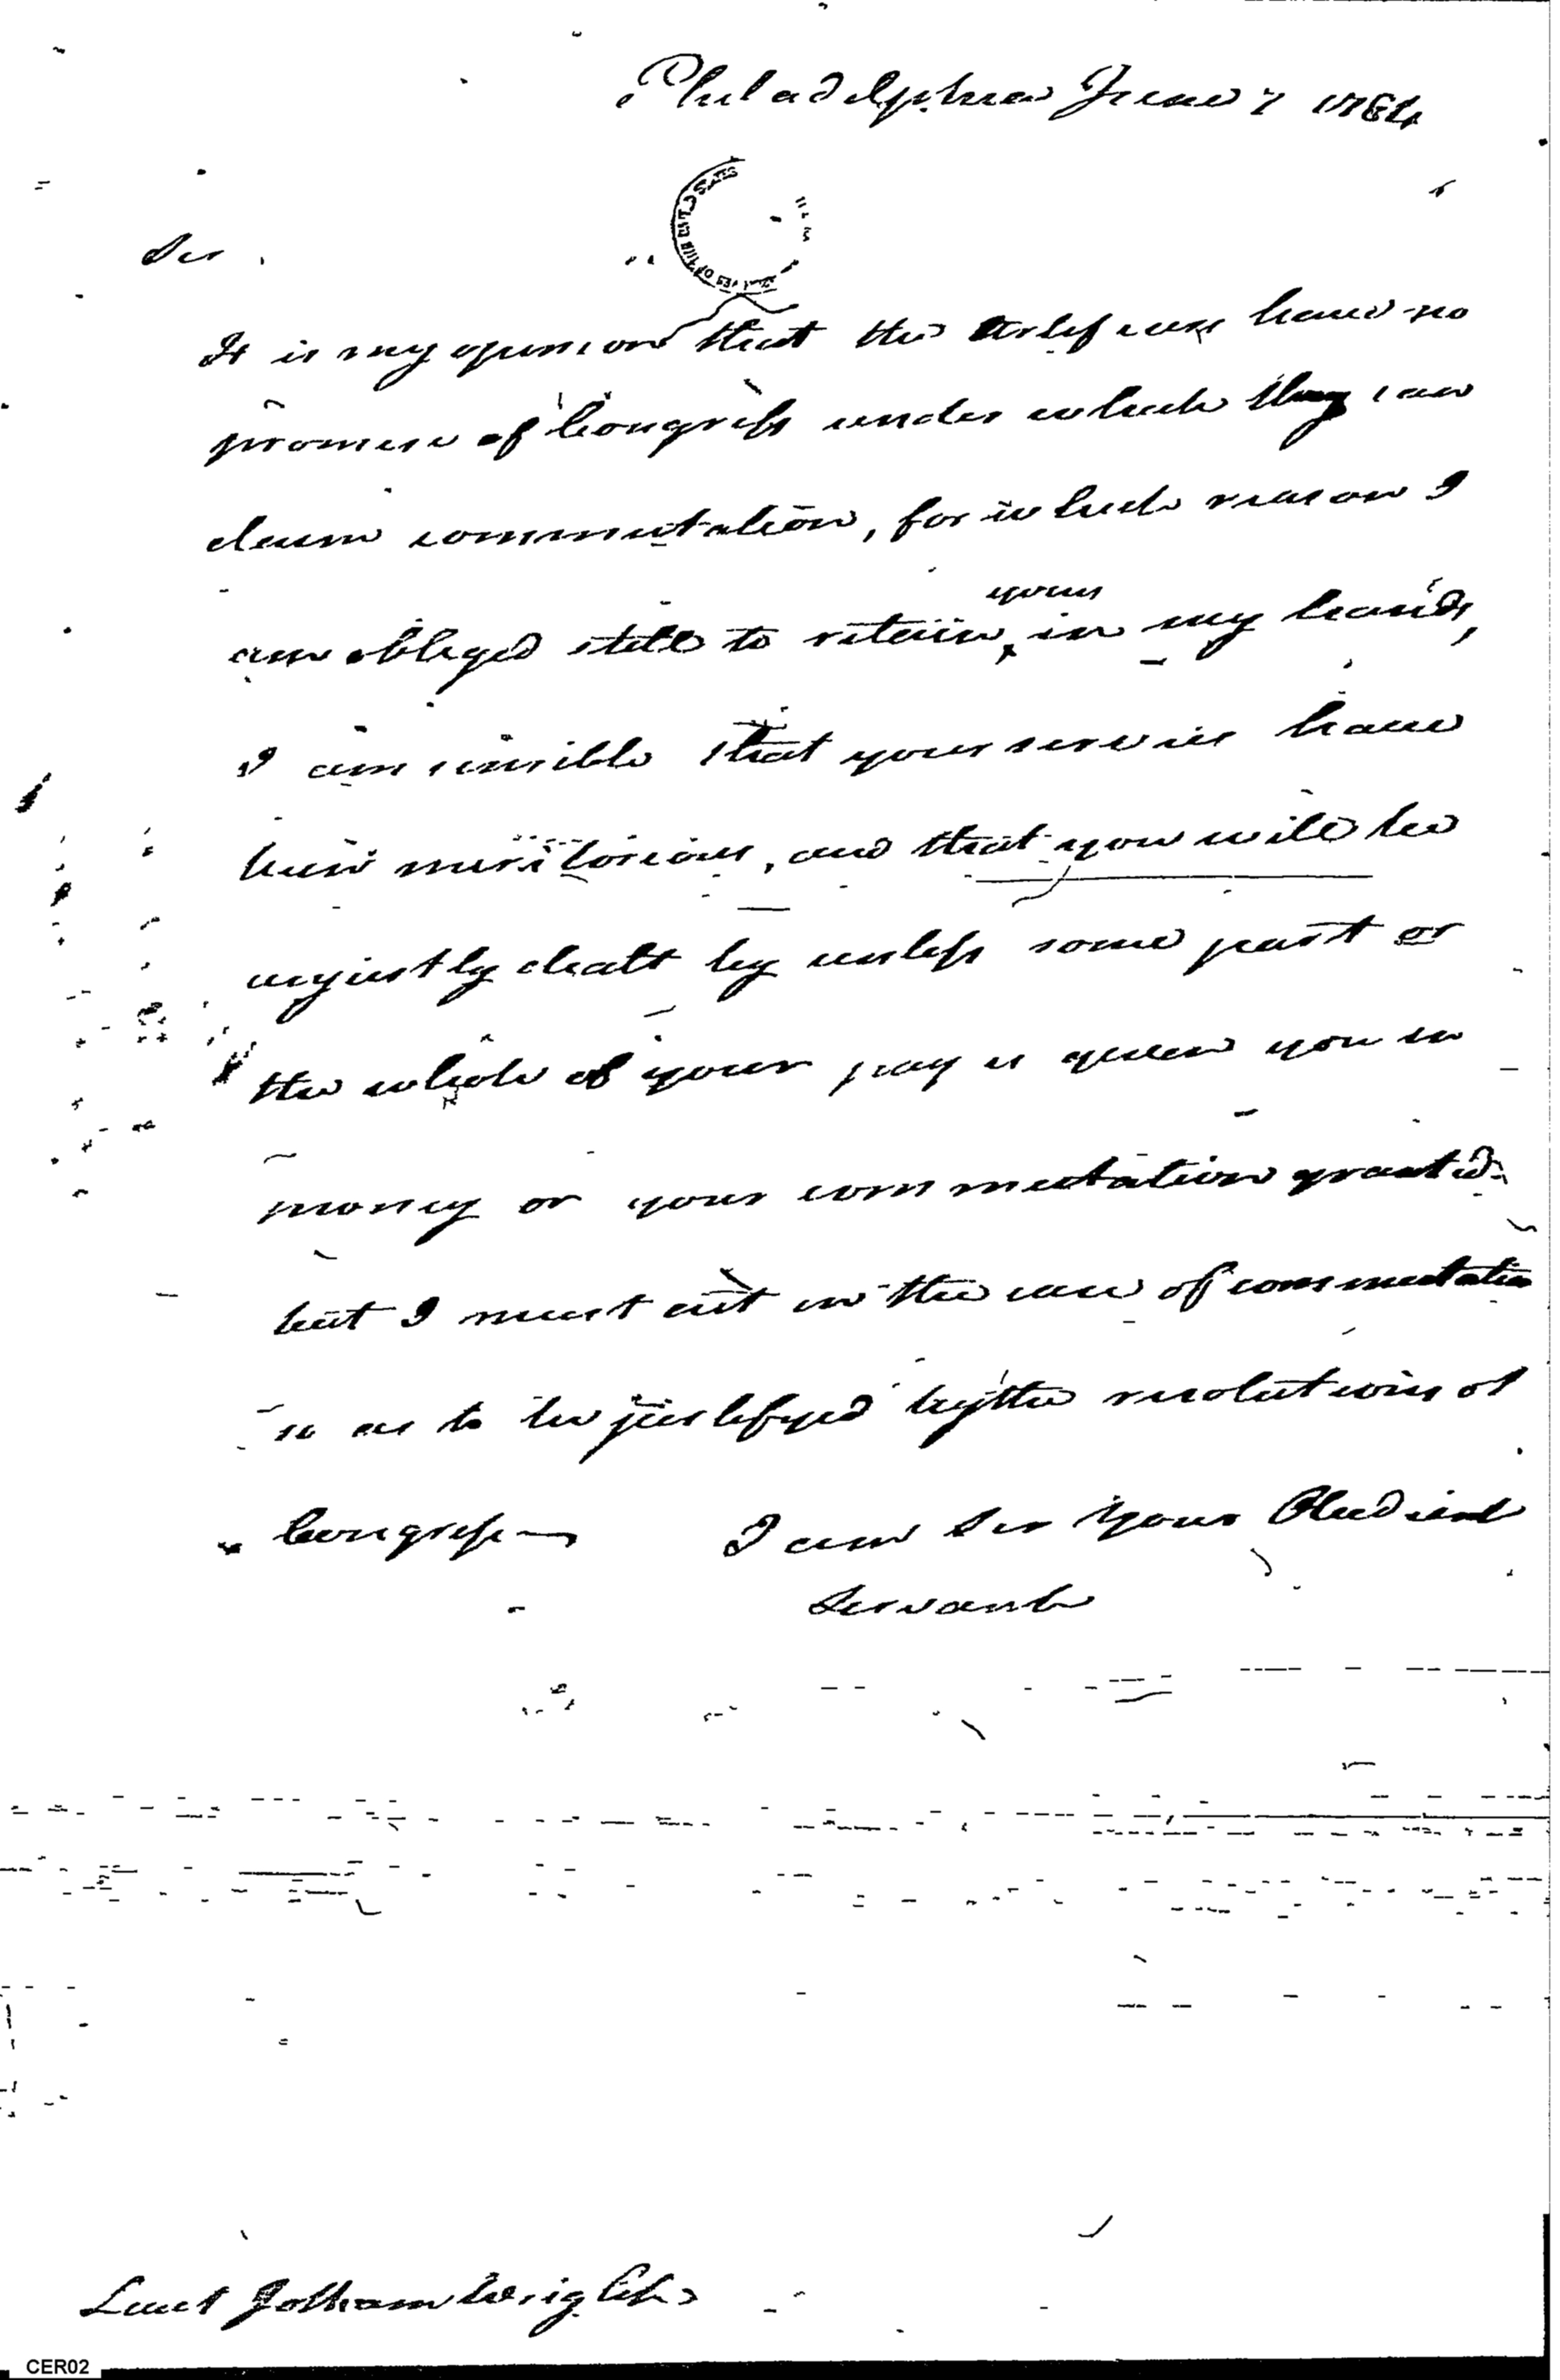 Philadelphia June 7 1784
Sir
It is my opinion that the Artificers have no
promise of Congress under which they can
claim commutation, for which reason I
am obliged still to retain yours in my hands,
I am sensible that your services have
been meritorious, and that you will be
unjustly dealt by unless some part or
the whole of your pay is given you in
money or your commutation granted.
but I must act in the case of commutation
so as to be justifyed by the resolutions of
Congress — I am Sir Your Obedient
Servant
Lieut Jotham Wright
CER02